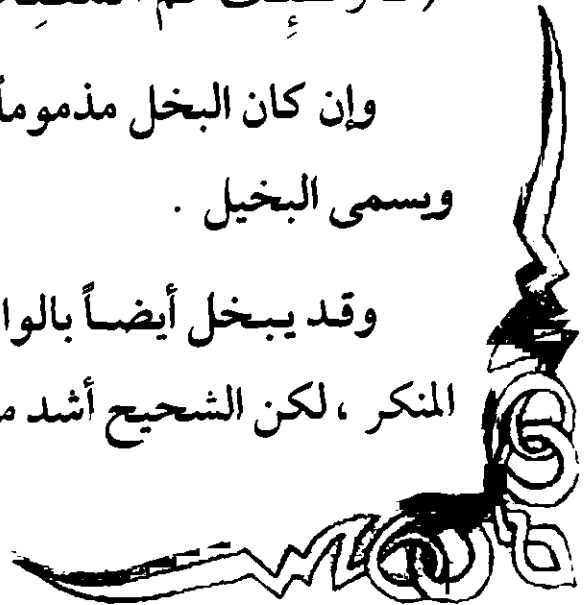 وإن كان البخل مذموماً
ويسمى البخيل .
وقد يبخل أيضاً بالوا
المنكر ، لكن الشحيح أشد م